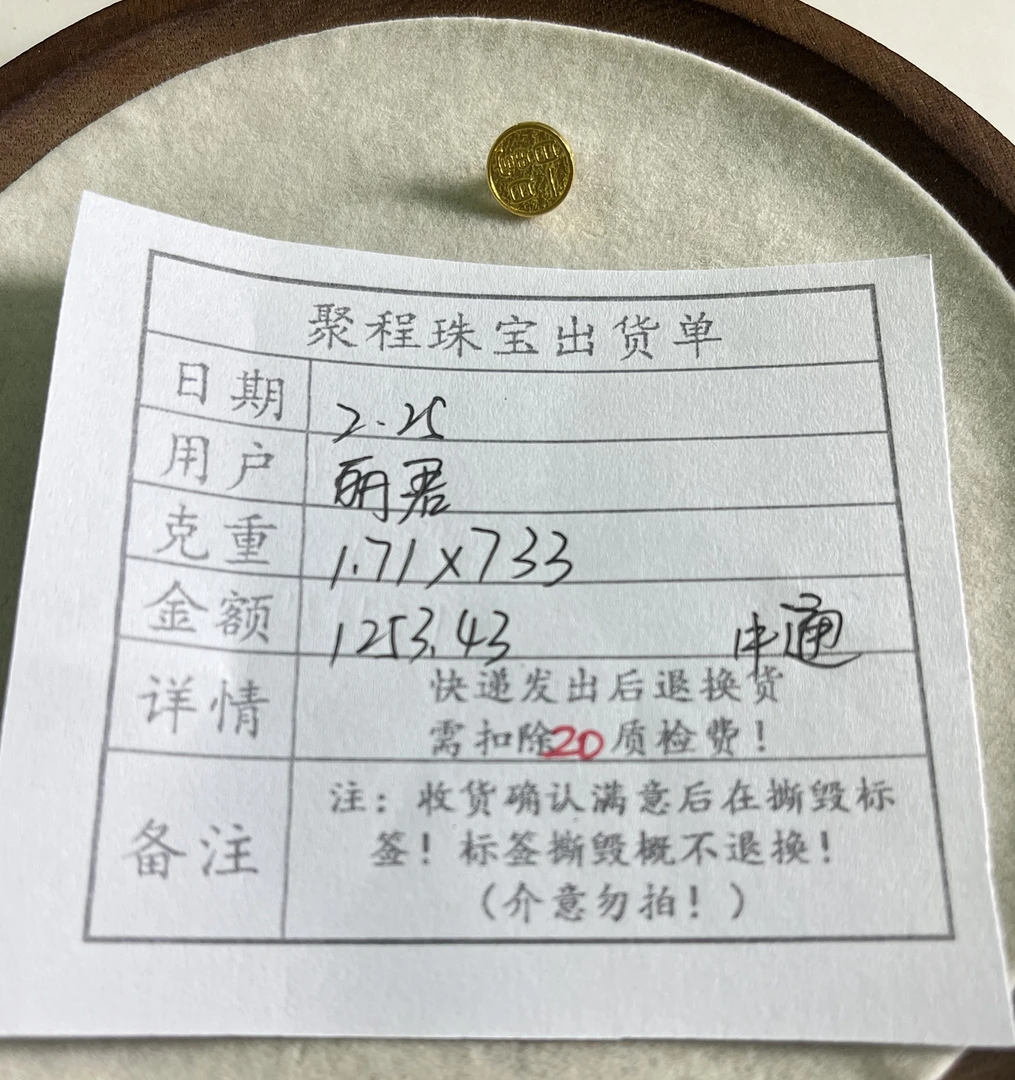 聚程珠宝出货单
日期 2.25
用户 丽君
克重 1.71x733
金额 1253.43 中通
详情 快递发出后退换货
需扣除20质检费！
备注 注：收货确认满意后在撕毁标
签！标签撕毁概不退换！
（介意勿拍！）